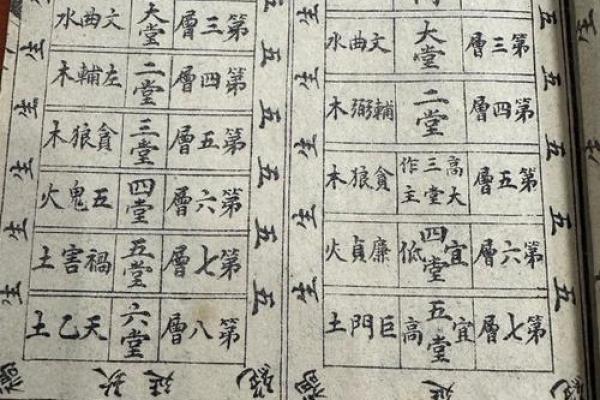 第三層 大堂 文曲水
第四層 二堂 輔弼木
第五層 高大三堂作主 貪狼木
第六層 宜四堂低 廉貞火
第七層 宜五堂高 巨門土
五
五
五
五
五
生
生
生
生
生
延
禍
第三層 大堂 文曲水
第四層 二堂 左輔木
第五層 三堂 貪狼木
第六層 四堂 五鬼火
第七層 五堂 禍害土
第八層 六堂 天乙土
五
五
五
五
五
五
生
生
生
生
生
生
延
禍